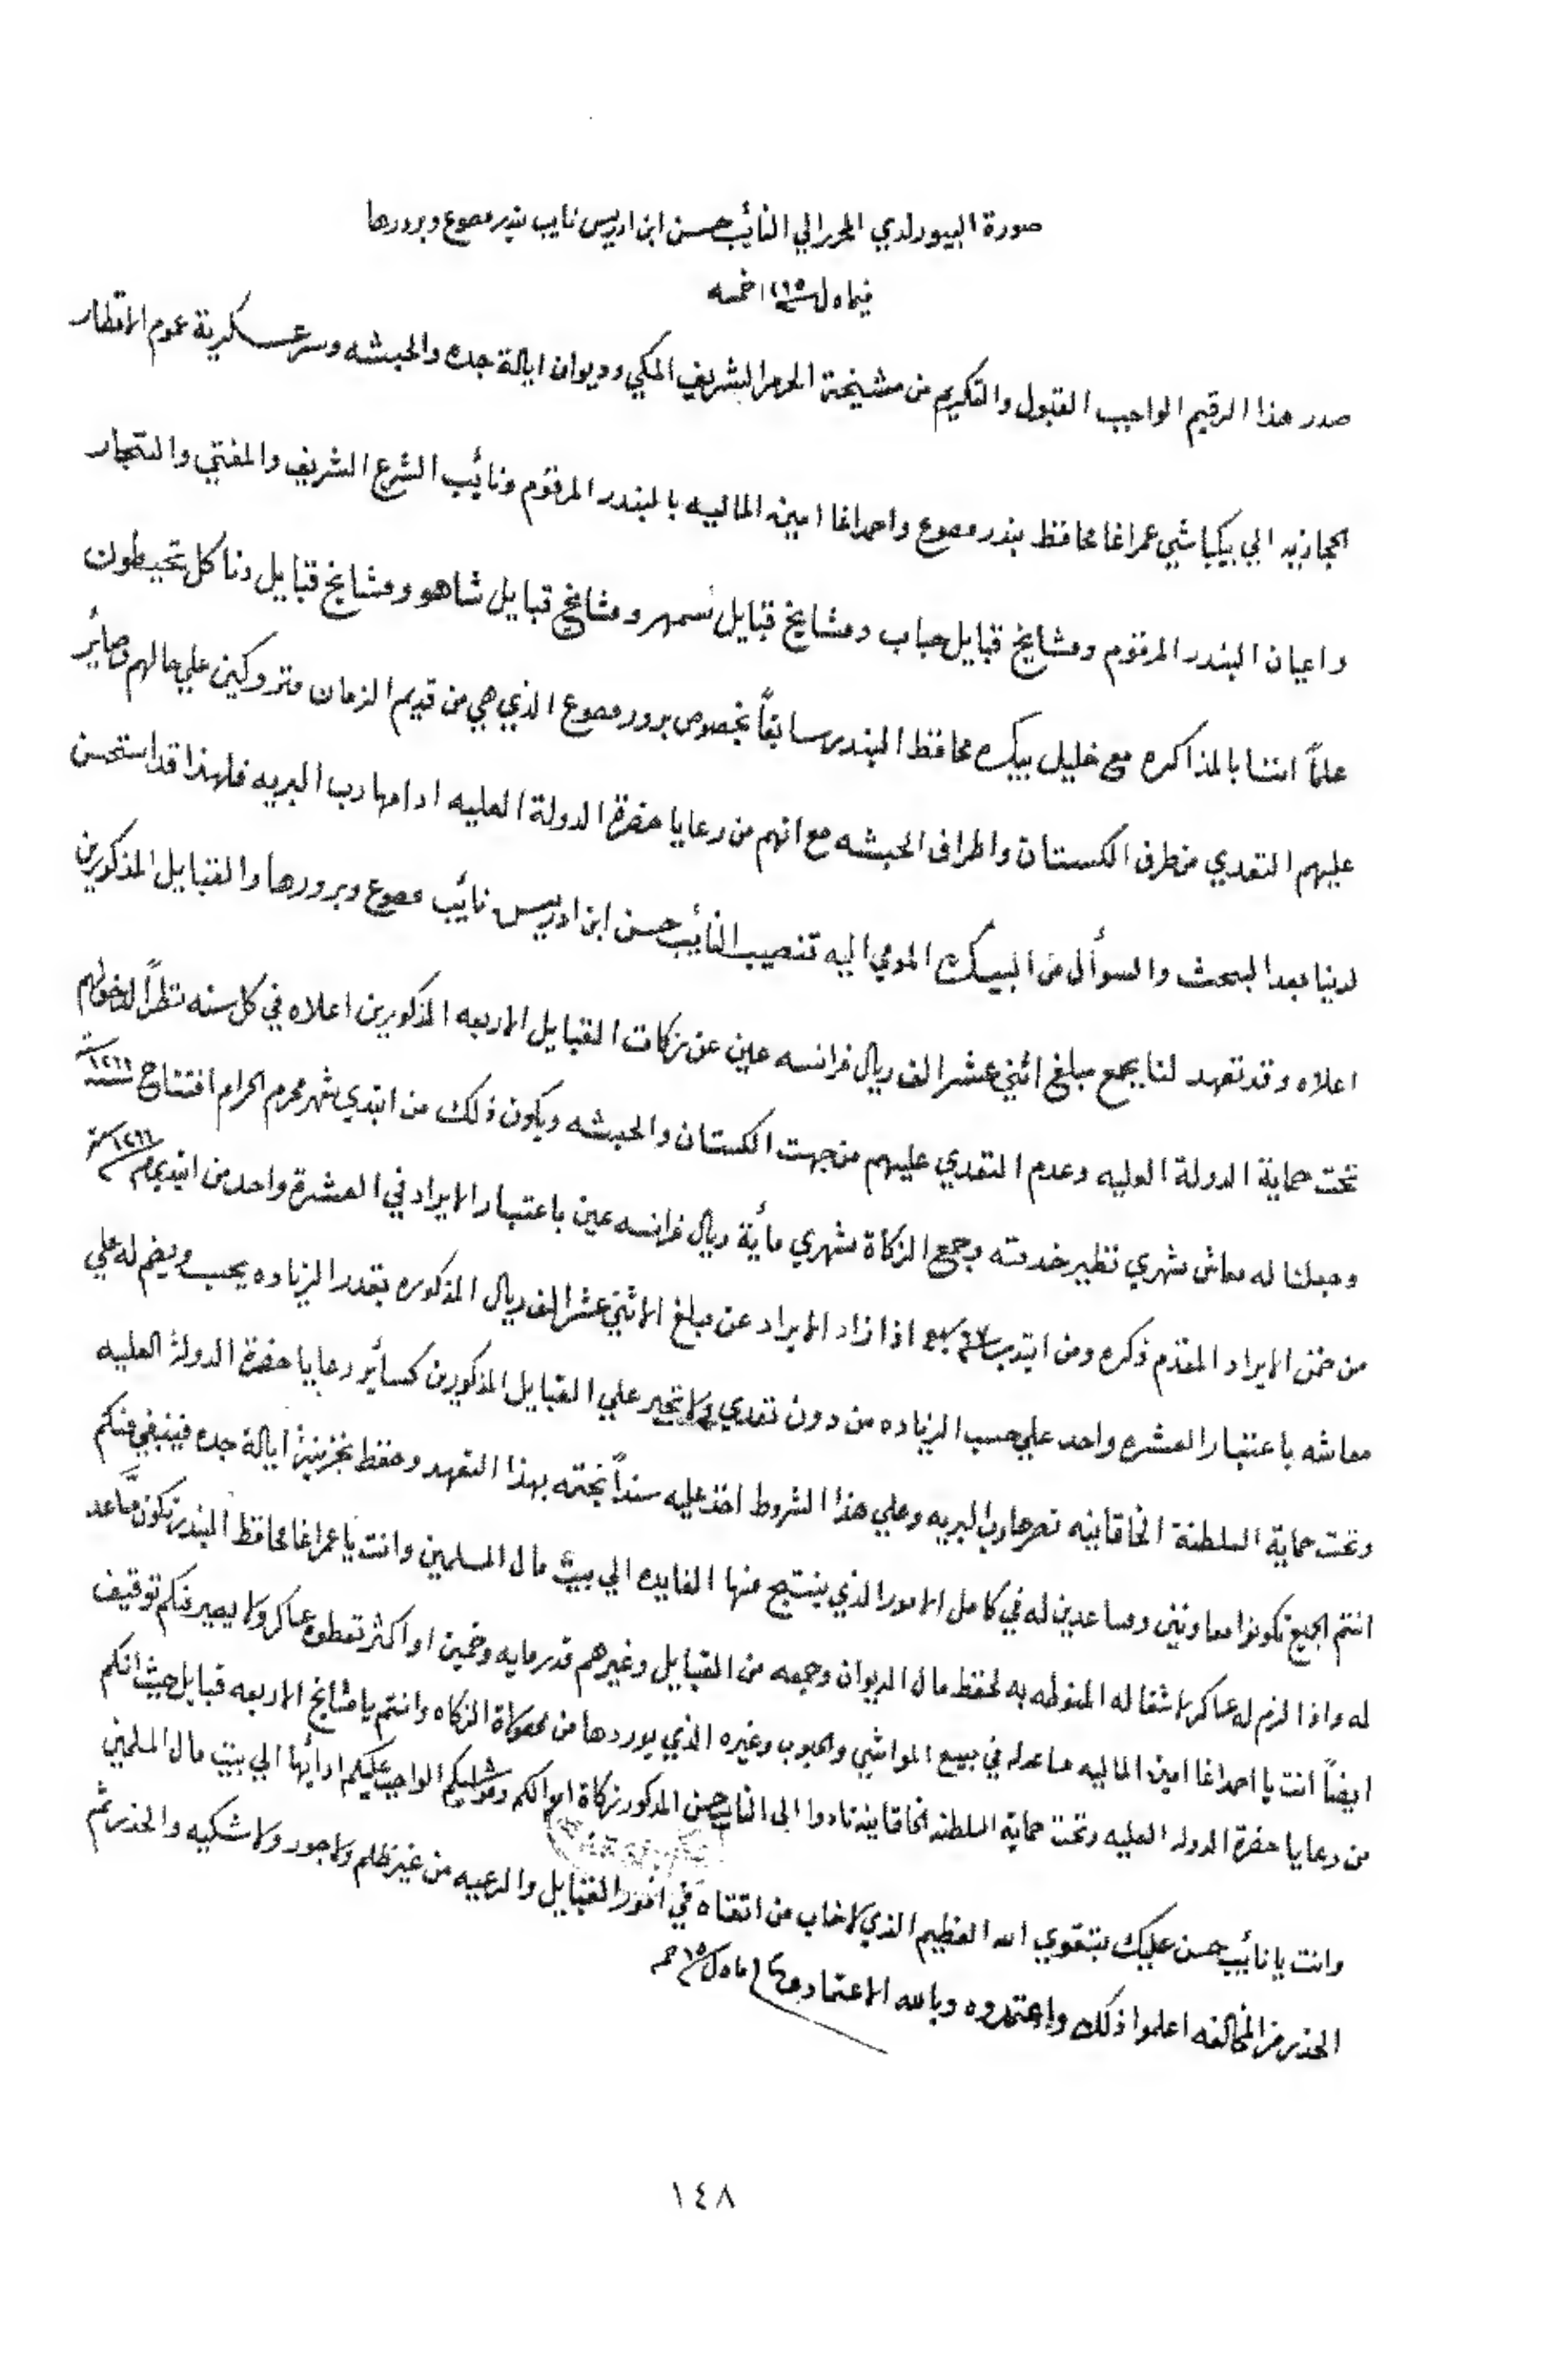 صورة البيورلدي المحرر الي النائب حسن ابن ادريس نايب بندر مصوع وبرورها
صدر هذا الرقيم الواجب القبول والتكريم من مشيخة الحرم الشريف المكي وديوان ايالة جده والحبشه وسرعسكرية عموم الاقطار
الحجازيه الي بيكباشي عمراغا محافظ بندر مصوع واحمداغا امين الماليه بالبندر المرقوم ونائب الشرع الشريف والمفتي والتجار
واعيان البندر المرقوم ومشايخ قبايل حباب ومشايخ قبايل سمهر ومشايخ قبايل شاهو ومشايخ قبايل دنا كل تحيطون
علماً اننا بالمذاكره مع خليل بيك محافظ البندر سابقاً بخصوص برور مصوع الذي هي من قديم الزمان متروكين علي حالهم وصائر
عليهم التعدي من طرف الكستان واطراف الحبشه مع انهم من رعايا حضرة الدولة العليه ادامها رب البريه فلهذا قد استحسن
لدينا بعد البحث والسوأل من البيك المومي اليه تنصيب النائب حسن ابن ادريس نائب مصوع وبرورها والقبايل المذكورين
اعلاه وقد تعهد لنا بجمع مبلغ اثني عشر الف ريال فرانسه عين عن زكات القبايل الاربعه المذكورين اعلاه في كل سنه نظراً لدخولهم
تحت حماية الدولة العليه وعدم التعدي عليهم من جهت الكستان والحبشه ويكون ذلك من ابتدي شهر محرم الحرام افتتاح سنة ١٢٦٦
وجعلنا له معاش شهري نظير خدمته وجمع الزكاة شهري مأية ريال فرانسه عين باعتبار الايراد في العشرة واحد من ابتدي م سنة ١٢٦٦
من ضمن الايراد المقدم ذكره ومن ابتدي اذا زاد الايراد عن مبلغ الاثني عشر الف ريال المذكوره بقدر الزياده يحسب ويضم له علي
معاشه باعتبار العشره واحد علي حسب الزياده من دون تعدي ولا تجبر علي القبايل المذكورين كسائر رعايا حضرة الدولة العليه
وتحت حماية السلطنة الخاقانيه نصرها رب البريه وعلي هذا الشروط اخذ عليه سنداً بختمه بهذا التعهد وحفظ بخزينة ايالة جده فينبغي منكم
انتم الجميع تكونوا معاونين ومساعدين له في كامل الامور الذي ينتج منها الفايده الي بيت مال المسلمين وانت يا عمراغا محافظ البندر تكون مساعد
له واذا لزم له عساكر لاشغاله المنوطه به لحفظ مال الديوان وجمعه من القبايل وغيرهم قدر مايه وخمسين او اكثر تعطوه عساكر ولا يصير منكم توقيف
ايضاً انت يا احمداغا امين الماليه مساعد له في بيع المواشي والحبوب وغيره الذي يوردها من الزكاه وانتم يا مشايخ الاربعه قبايل حيث انكم
من رعايا حضرة الدوله العليه وتحت حماية السلطنه الخاقانيه تادوا الى النايب حسن المذكور زكاة اموالكم ومواشيكم الواجب عليكم ادائها الي بيت مال المسلمين
وانت يا نائب حسن عليك بتقوي الله العظيم الذي لا خاب من اتقاه في امور القبايل والرعيه من غير ظلم ولا جور ولا شكيه والحذر ثم
الحذر من المخالفه اعلموا ذلك واعتمدوه وبالله الاعتماد
١٤٨